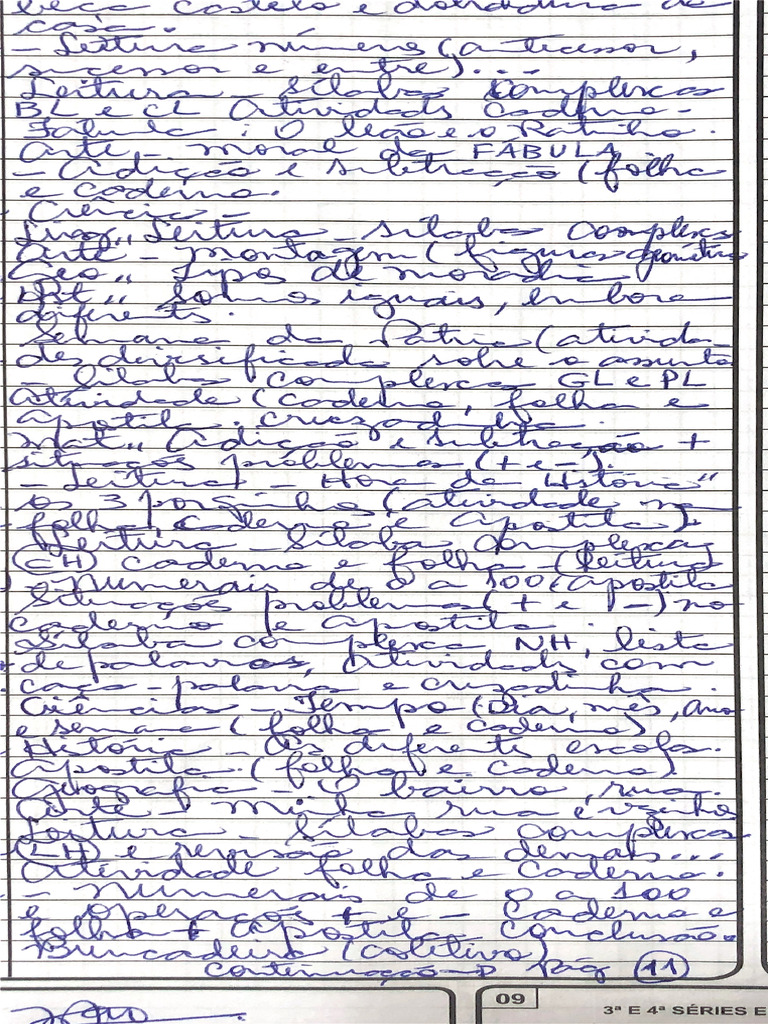 casa.
- Leitura números (antecessor,
sucessor e entre)....
Leitura - Sílabas Complexas
BL e CL Atividades Caderno -
Fábula : O leão e o Ratinho.
Arte - moral da FÁBULA
- Adição e subtração (folha
e caderno.
Ciência -
Leitura - sílabas Complexas
Arte - montagem (figuras geométricas
Geo " tipos de moradia
Hist " Somos iguais, embora
diferentes.
Semana da Pátria (ativida-
des diversificada sobre o assunto
- Sílabas Complexas GL e PL
Atividade (caderno, folha e
apostila. cruzadinha.
Mat " Adição e subtração +
situações problemas (+ e -).
- Leitura - Hora da História"
os 3 porquinhos (atividade na
folha, caderno e apostila).
Leitura - Sílabas Complexas
(CH) caderno e folha - (Leitura)
- Numerais de 0 a 100 (apostila
Situações problema (+ e -) no
caderno e apostila.
Sílaba complexa NH, lista
de palavras, atividades com
caça-palavra e cruzadinha.
Ciências - Tempo (Dia, mês, ano
e semana (folha e caderno)
História - As diferentes escolas.
Apostila. (folha e caderno).
Geografia - O bairro, rua.
Arte - minha rua e vizinhos
Leitura - Sílabas complexas
(LH) e revisão das demais...
Atividade folha e caderno.
- Numerais de 0 a 100
e operações + e - caderno e
folha + apostila - conclusão.
Brincadeira (coletiva)
continuação → pág 11
09
3ª E 4ª SÉRIES E